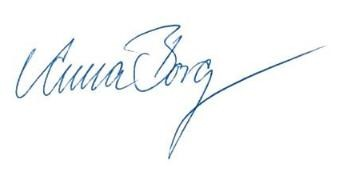 Anna Borg